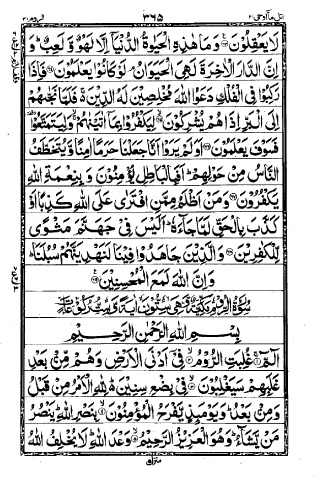 اتل ما اوحی ۲۱ ۳۶۵ الروم ۳۰
لَا يَعْقِلُوْنَ۝ وَمَا هٰذِهِ الْحَيٰوةُ الدُّنْيَاۤ اِلَّا لَهْوٌ وَّلَعِبٌ ؕ وَ
اِنَّ الدَّارَ الْاٰخِرَةَ لَهِيَ الْحَيَوَانُ ۘ لَوْ كَانُوْا يَعْلَمُوْنَ۝ فَاِذَا
رَكِبُوْا فِي الْفُلْكِ دَعَوُا اللهَ مُخْلِصِيْنَ لَهُ الدِّيْنَ ۚ فَلَمَّا نَجّٰىهُمْ
اِلَى الْبَرِّ اِذَا هُمْ يُشْرِكُوْنَ۝ لِيَكْفُرُوْا بِمَاۤ اٰتَيْنٰهُمْ ۙ وَلِيَتَمَتَّعُوْا ۥ
فَسَوْفَ يَعْلَمُوْنَ۝ اَوَلَمْ يَرَوْا اَنَّا جَعَلْنَا حَرَمًا اٰمِنًا وَّيُتَخَطَّفُ
النَّاسُ مِنْ حَوْلِهِمْ ؕ اَفَبِالْبَاطِلِ يُؤْمِنُوْنَ وَبِنِعْمَةِ اللهِ
يَكْفُرُوْنَ۝ وَمَنْ اَظْلَمُ مِمَّنِ افْتَرٰى عَلَى اللهِ كَذِبًا اَوْ
كَذَّبَ بِالْحَقِّ لَمَّا جَآءَهٗ ؕ اَلَيْسَ فِيْ جَهَنَّمَ مَثْوًى
لِّلْكٰفِرِيْنَ۝ وَالَّذِيْنَ جَاهَدُوْا فِيْنَا لَنَهْدِيَنَّهُمْ سُبُلَنَا ؕ
وَاِنَّ اللهَ لَمَعَ الْمُحْسِنِيْنَ۝
سُوْرَةُ الرُّوْمِ مَكِّيَّةٌ وَّهِيَ سِتُّوْنَ اٰيَةً وَّسِتُّ رُكُوْعَاتٍ
بِسْمِ اللهِ الرَّحْمٰنِ الرَّحِيْمِ
الٓمّٓ۝ غُلِبَتِ الرُّوْمُ۝ فِيْۤ اَدْنَى الْاَرْضِ وَهُمْ مِّنْۢ بَعْدِ
غَلَبِهِمْ سَيَغْلِبُوْنَ۝ فِيْ بِضْعِ سِنِيْنَ ؕ لِلّٰهِ الْاَمْرُ مِنْ قَبْلُ
وَمِنْۢ بَعْدُ ؕ وَيَوْمَئِذٍ يَّفْرَحُ الْمُؤْمِنُوْنَ۝ بِنَصْرِ اللهِ ؕ يَنْصُرُ
مَنْ يَّشَآءُ ؕ وَهُوَ الْعَزِيْزُ الرَّحِيْمُ۝ وَعْدَ اللهِ ؕ لَا يُخْلِفُ اللهُ
منزل